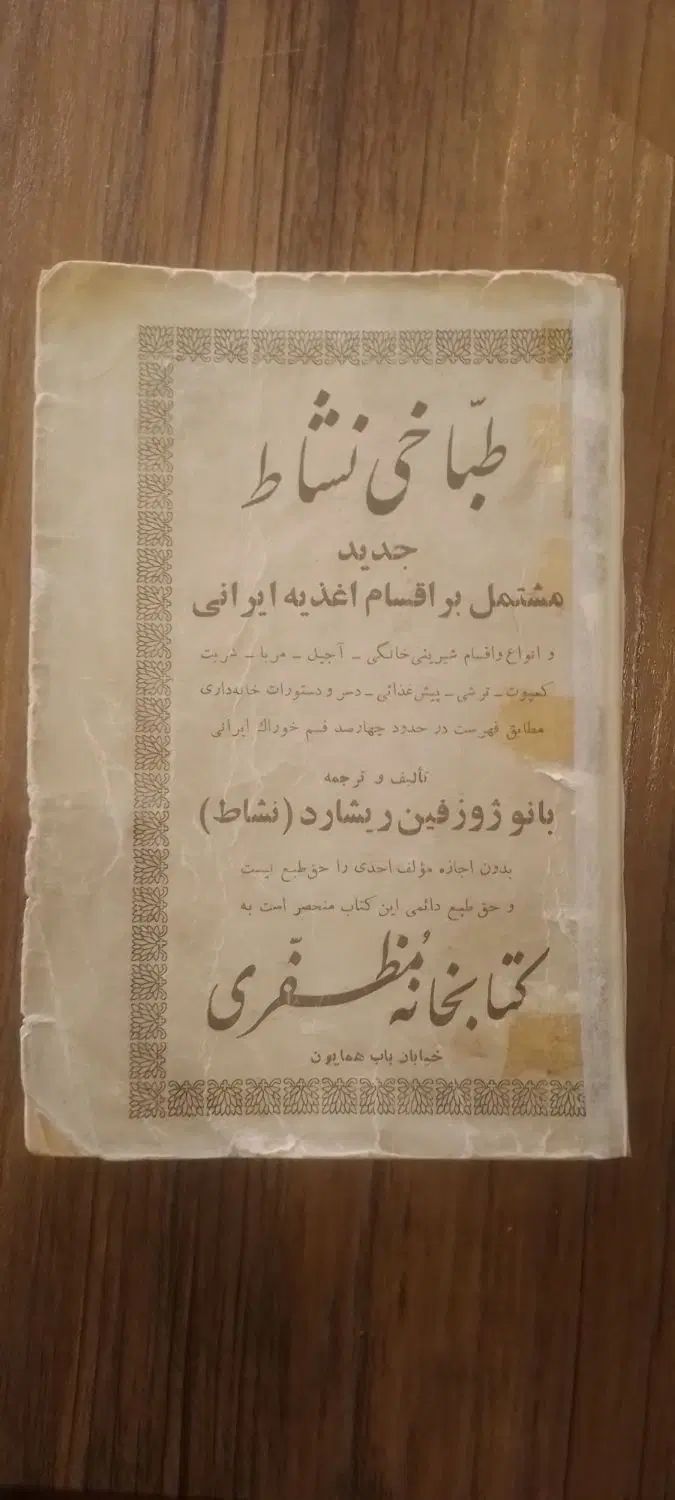 طبّاخی نشاط
جدید
مشتمل بر اقسام اغذیه ایرانی
و انواع واقسام شیرینی خانگی ـ آجیل ـ مربا ـ شربت
کمپوت ـ ترشی ـ پیش غذائی ـ دسر و دستورات خانه‌داری
مطابق فهرست در حدود چهارصد قسم خوراك ایرانی
تألیف و ترجمه
بانو ژوزفین ریشارد (نشاط)
بدون اجازه مؤلف احدی را حق طبع نیست
و حق طبع دائمی این کتاب منحصر است به
کتابخانه مُظفّری
خیابان باب همایون